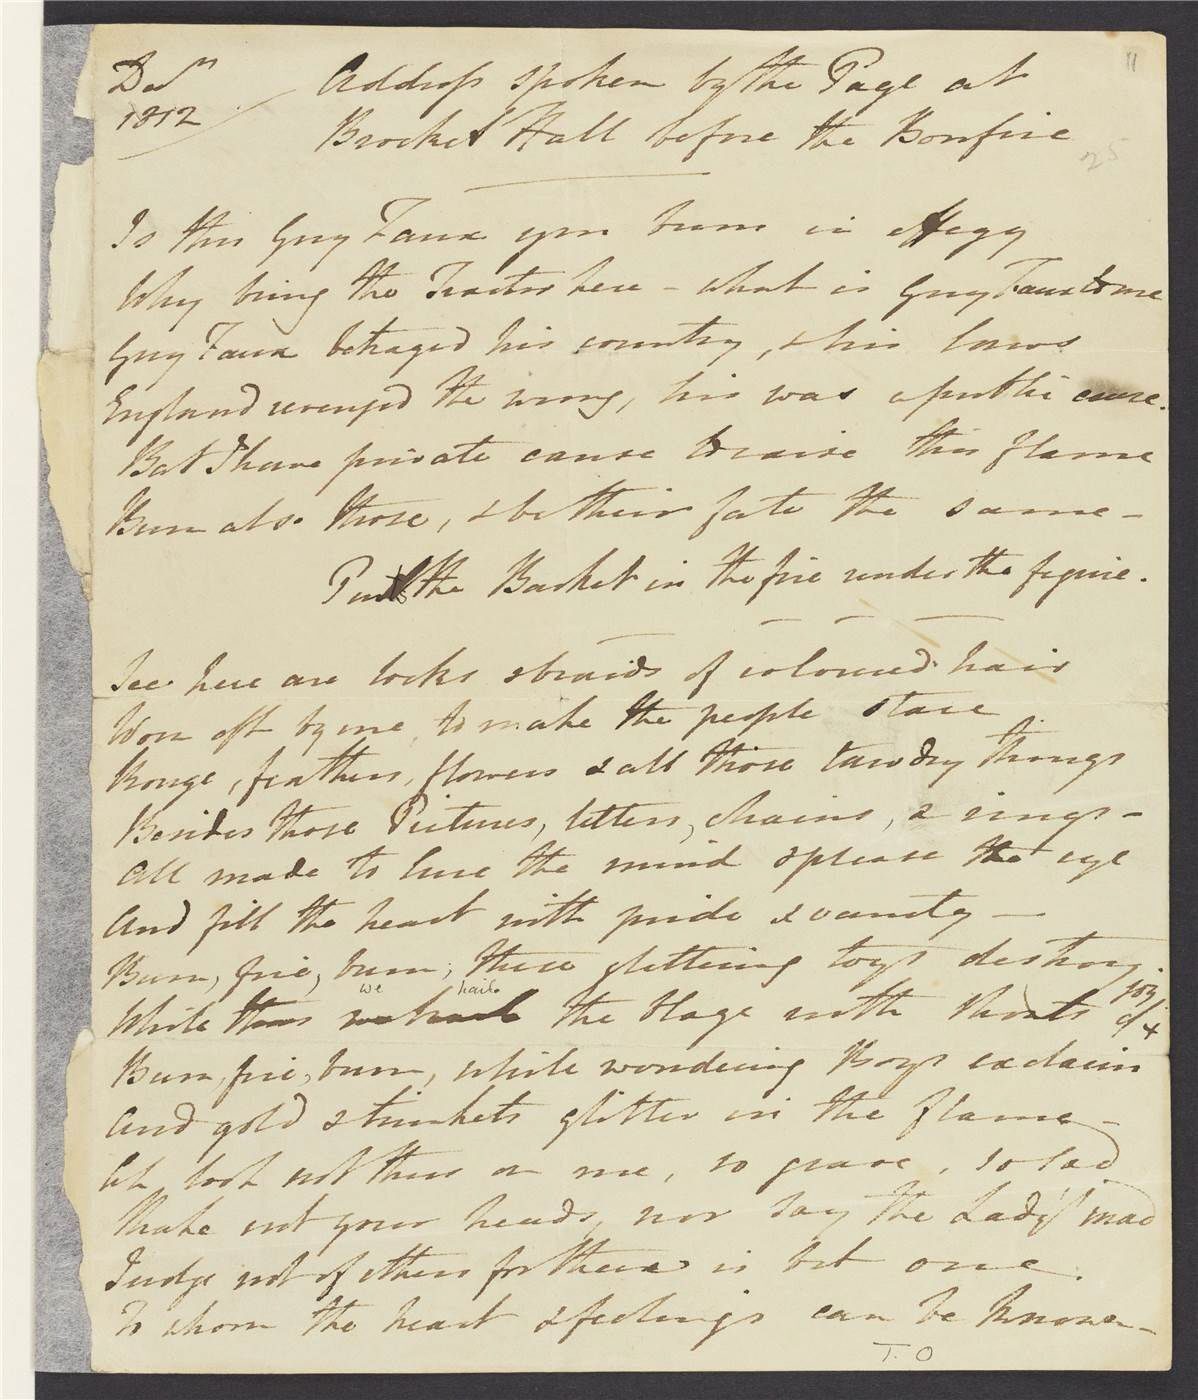 Decr 1812
Address spoken by the Page at
Brocket Hall before the Bonfire
11
25
Is this Guy Faux you burn in effegy
Why bring the Traitor here - what is Guy Faux to me
Guy Faux betrayed his country, & his laws
England revenged the wrong, his was a public cause.
But I have private cause to raise this flame
Burn also those, & be their fate the same -
Put the Basket in the fire under the figure.
See here are locks & braids of coloured hair
Worn oft by me, to make the people stare
Rouge, feathers, flowers & all those tawdry things
Besides those Pictures, letters, chains, & rings -
All made to lure the mind & please the eye
And fill the heart with pride & vanity -
Burn, fire, burn, these glittering toys destroy.
we hail
While thus we hail the blaze with shouts of joy
Burn, fire, burn, while wondering Boys exclaim
And gold & trinkets glitter in the flame -
Ah look not thus on me, so grave, so sad
Shake not your heads, nor say the Lady's mad
Judge not of others for there is but one.
To whom the heart & feelings can be known -
T. O